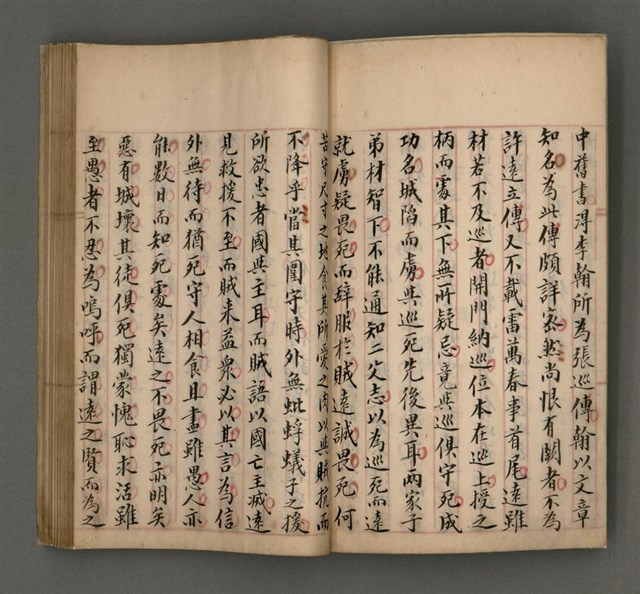 中舊書得李翰所為張巡傳翰以文章
知名為此傳頗詳密然尚恨有闕者不為
許遠立傳又不載雷萬春事首尾遠雖
材若不及巡者開門納巡位本在巡上授之
柄而處其下無所疑忌竟與巡俱守死成
功名城陷而虜與巡死先後異耳兩家子
弟材智下不能通知二父志以為巡死而遠
就虜疑畏死而辭服於賊遠誠畏死何
苦守尺寸之地食其所愛之肉以與賊抗而
不降乎當其圍守時外無蚍蜉蟻子之援
所欲忠者國與主耳而賊語以國亡主滅遠
見救援不至而賊来益衆必以其言為信
外無待而猶死守人相食且盡雖愚人亦
能數日而知死處矣遠之不畏死亦明矣
惡有城壞其徒俱死獨蒙愧恥求活雖
至愚者不忍為嗚呼而謂遠之賢而為之